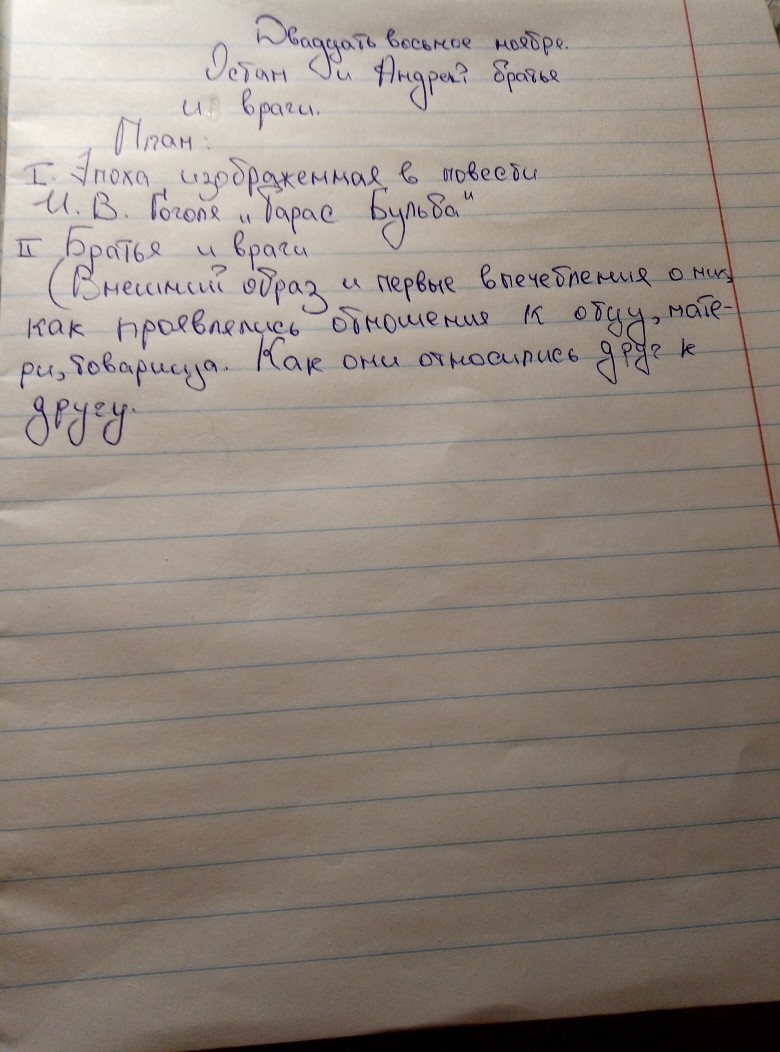 Двадцать восьмое ноября.
Остап и Андрей братья
и враги.
План:
I. Эпоха изображенная в повести
Н. В. Гоголя "Тарас Бульба"
II Братья и враги
(Внешний образ и первые впечетления о них,
как проявлялись отношения к отцу, мате-
ри, товарища. Как они относились друг к
другу.